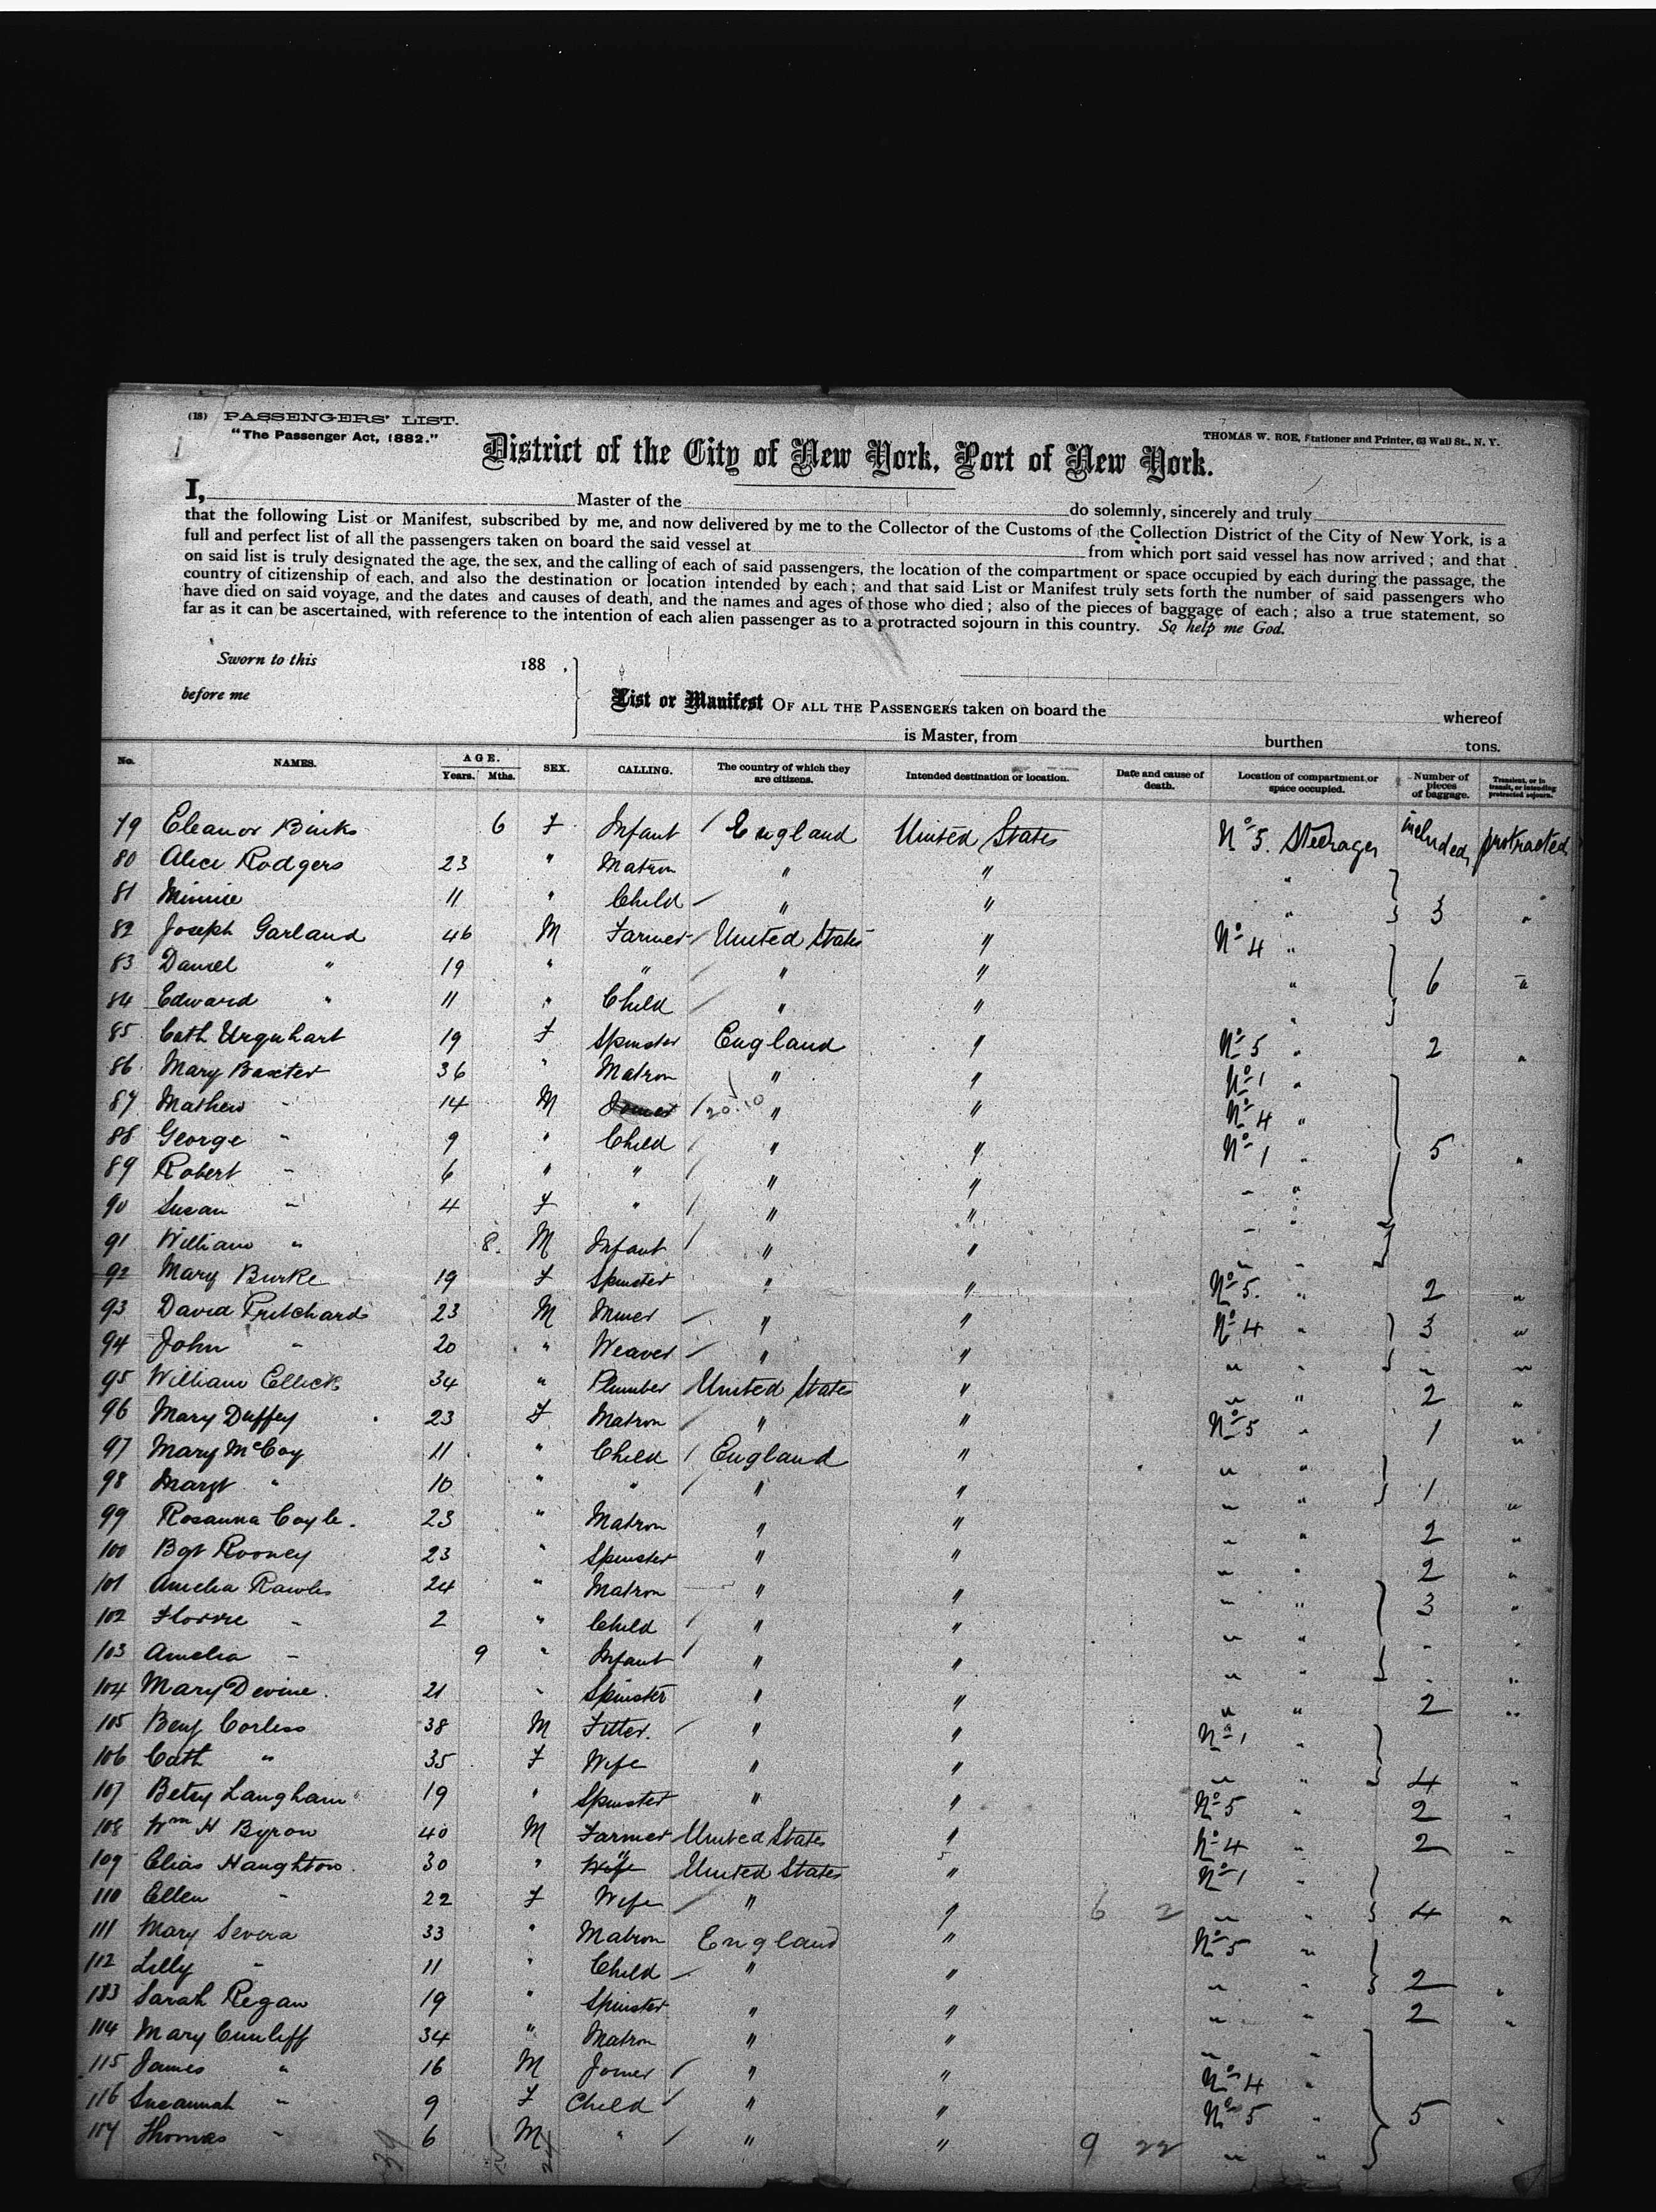 (18) PASSENGERS' LIST.
"The Passenger Act, 1882."
THOMAS W. ROE, Stationer and Printer, 63 Wall St., N. Y.
District of the City of New York, Port of New York.
I, Master of the do solemnly, sincerely and truly
that the following List or Manifest, subscribed by me, and now delivered by me to the Collector of the Customs of the Collection District of the City of New York, is a
full and perfect list of all the passengers taken on board the said vessel at from which port said vessel has now arrived; and that
on said list is truly designated the age, the sex, and the calling of each of said passengers, the location of the compartment or space occupied by each during the passage, the
country of citizenship of each, and also the destination or location intended by each; and that said List or Manifest truly sets forth the number of said passengers who
have died on said voyage, and the dates and causes of death, and the names and ages of those who died; also of the pieces of baggage of each; also a true statement, so
far as it can be ascertained, with reference to the intention of each alien passenger as to a protracted sojourn in this country. So help me God.
Sworn to this 188 .
before me
List or Manifest OF ALL THE PASSENGERS taken on board the whereof
is Master, from burthen tons.
No. NAMES. AGE. Years. Mths. SEX. CALLING. The country of which they are citizens. Intended destination or location. Date and cause of death. Location of compartment or space occupied. Number of pieces of baggage. Transient, or in transit, or intending protracted sojourn.
79 Eleanor Binks 6 F Infant / England United States No 5. Steerage included protracted
80 Alice Rodgers 23 " Matron " " "
81 Minnie 11 " Child / " " " 3 "
82 Joseph Garland 46 M Farmer / United States " No 4 "
83 Daniel " 19 " " / " " " 6 "
84 Edward " 11 " Child / " " "
85 Cath Urquhart 19 F Spinster England " No 5 " 2 "
86 Mary Baxter 36 " Matron " " No 1 "
87 Mathew " 14 M / " " No 4 "
88 George " 9 " Child / " " No 1 " 5 "
89 Robert " 6 " " / " " " "
90 Susan " 4 F " / " " " "
91 William " 8 M Infant / " " " "
92 Mary Burke 19 F Spinster " " No 5. " 2 "
93 David Pritchard 23 M Miner / " " No 4 " 3 "
94 John " 20 " Weaver / " " " " " "
95 William Ellick 34 " Plumber United States " " " 2 "
96 Mary Duffey 23 F Matron / " " No 5 " 1 "
97 Mary McCoy 11 " Child / England " " "
98 Margt " 10 " " / " " " " 1 "
99 Rosanna Coyle. 23 " Matron " " " " 2 "
100 Bgt Rooney 23 " Spinster " " " " 2 "
101 Amelia Rawles 24 " Matron " " " " 3 "
102 " 2 " Child / " " " " " "
103 Amelia " 9 " Infant / " " " " " "
104 Mary Devine. 21 " Spinster " " " " 2 "
105 Benj Corless 38 M Fitter. / " " No 1 "
106 Cath " 35 F Wife " " " " 4 "
107 Betsy Langham 19 " Spinster " " No 5 " 2 "
108 Wm H Byron 40 M Farmer United States " No 4 " 2 "
109 Elias Haughton 30 " " United States " No 1 "
110 Ellen " 22 F Wife / " " 6 2 " " 4 "
111 Mary Severa 33 " Matron England " No 5 "
112 Lilly " 11 " Child / " " " " 2 "
113 Sarah Regan 19 " Spinster " " " " 2 "
114 Mary Cunliff 34 " Matron " " " "
115 James " 16 M Joiner / " " No 4 "
116 Susannah " 9 F Child / " " No 5 " 5 "
117 Thomas " 6 M " / " " 9 22 " "
39